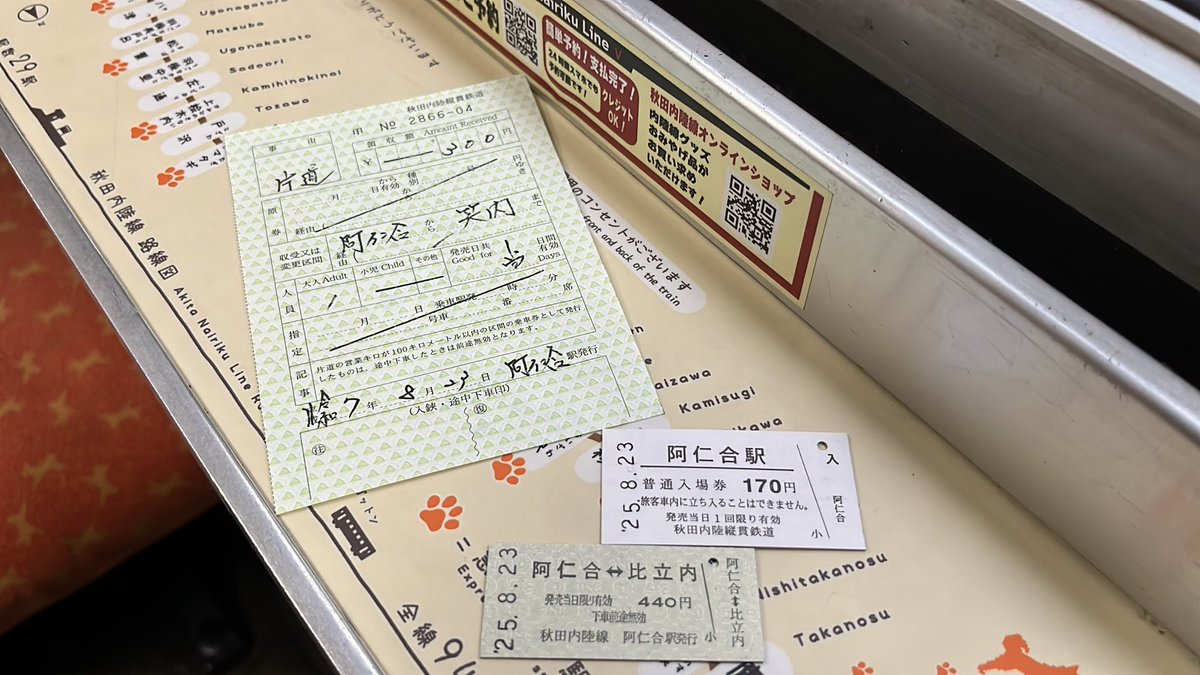 秋田内陸縦貫鉄道
№ 2866-04
事由
領収額 Amount Received
片道
¥ 300 円
月 日から有効
種別
から 号
円ゆき
原券
経由
収受又は変更区間
阿仁合 から 笑内 まで
経由
人員
大人Adult
小児Child
その他
発売日共 Good for
日間有効 Days
1
当
指定
月 日 乗車駅発 時 分
号車 番 席
記事
片道の営業キロが100キロメートル以内の区間の乗車券として発行
したものは、途中下車したときは前途無効となります。
令和 7 年 8 月 23 日 阿仁合 駅発行
(入鋏・途中下車印)
阿仁合駅
普通入場券 170円
旅客車内に立ち入ることはできません。
発売当日1回限り有効
秋田内陸縦貫鉄道
'25.8.23
入
阿仁合
小
阿仁合↔比立内
発売当日限り有効 440円
下車前途無効
秋田内陸線 阿仁合駅発行
'25.8.23
阿仁合↔比立内
小
Nairiku Line
簡単予約!支払完了!
24時間スマホでも
クレジット
OK!
秋田内陸線オンラインショップ
内陸線グッズ
おみやげ品が
お買い求め
いただけます!
のコンセントがございます
front and back of the train
ありがとうございます
Ugonagatoro
Matsuba
Ugonakazato
Sadoori
Kamihinokinai
Tozawa
駅数29駅
秋田内陸線 路線図 Akita Nairiku Line
Kamisugi
Nishitakanosu
Takanosu
全線